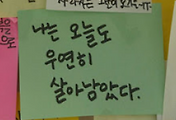 나는 오늘도
우연히
살아남았다.